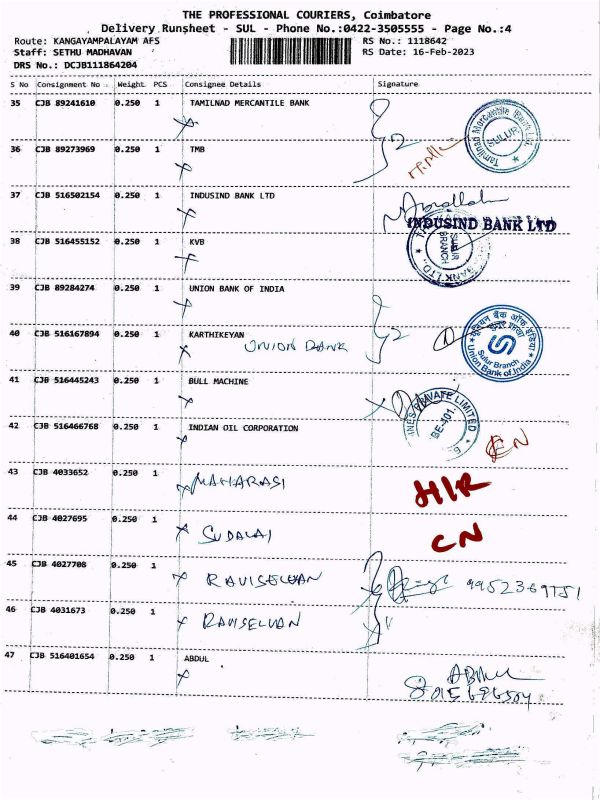 THE PROFESSIONAL COURIERS, Coimbatore
Delivery Runsheet - SUL - Phone No.:0422-3505555 - Page No.:4
Route: KANGAYAMPALAYAM AFS RS No.: 1118642
Staff: SETHU MADHAVAN RS Date: 16-Feb-2023
DRS No.: DCJB111864204
S No Consignment No Weight PCS Consignee Details Signature
35 CJB 89241610 0.250 1 TAMILNAD MERCANTILE BANK
Tamilnad Mercantile Bank Ltd.
SULUR
36 CJB 89273969 0.250 1 TMB
37 CJB 516502154 0.250 1 INDUSIND BANK LTD
INDUSIND BANK LTD
38 CJB 516455152 0.250 1 KVB
SULUR
BRANCH
BANK LTD.,
39 CJB 89284274 0.250 1 UNION BANK OF INDIA
40 CJB 516167894 0.250 1 KARTHIKEYAN
UNION BANK
यूनियन बैंक ऑफ इंडिया
Sulur Branch
Union Bank of India
41 CJB 516445243 0.250 1 BULL MACHINE
INES PRIVATE LIMITED
BE-401.
42 CJB 516466768 0.250 1 INDIAN OIL CORPORATION
CN
43 CJB 4033652 0.250 1 MAHARASI
H/R
44 CJB 4027695 0.250 1 SUDALAI
CN
45 CJB 4027708 0.250 1 RAVISELVAN
46 CJB 4031673 0.250 1 RAVISELVAN
47 CJB 516401654 0.250 1 ABDUL